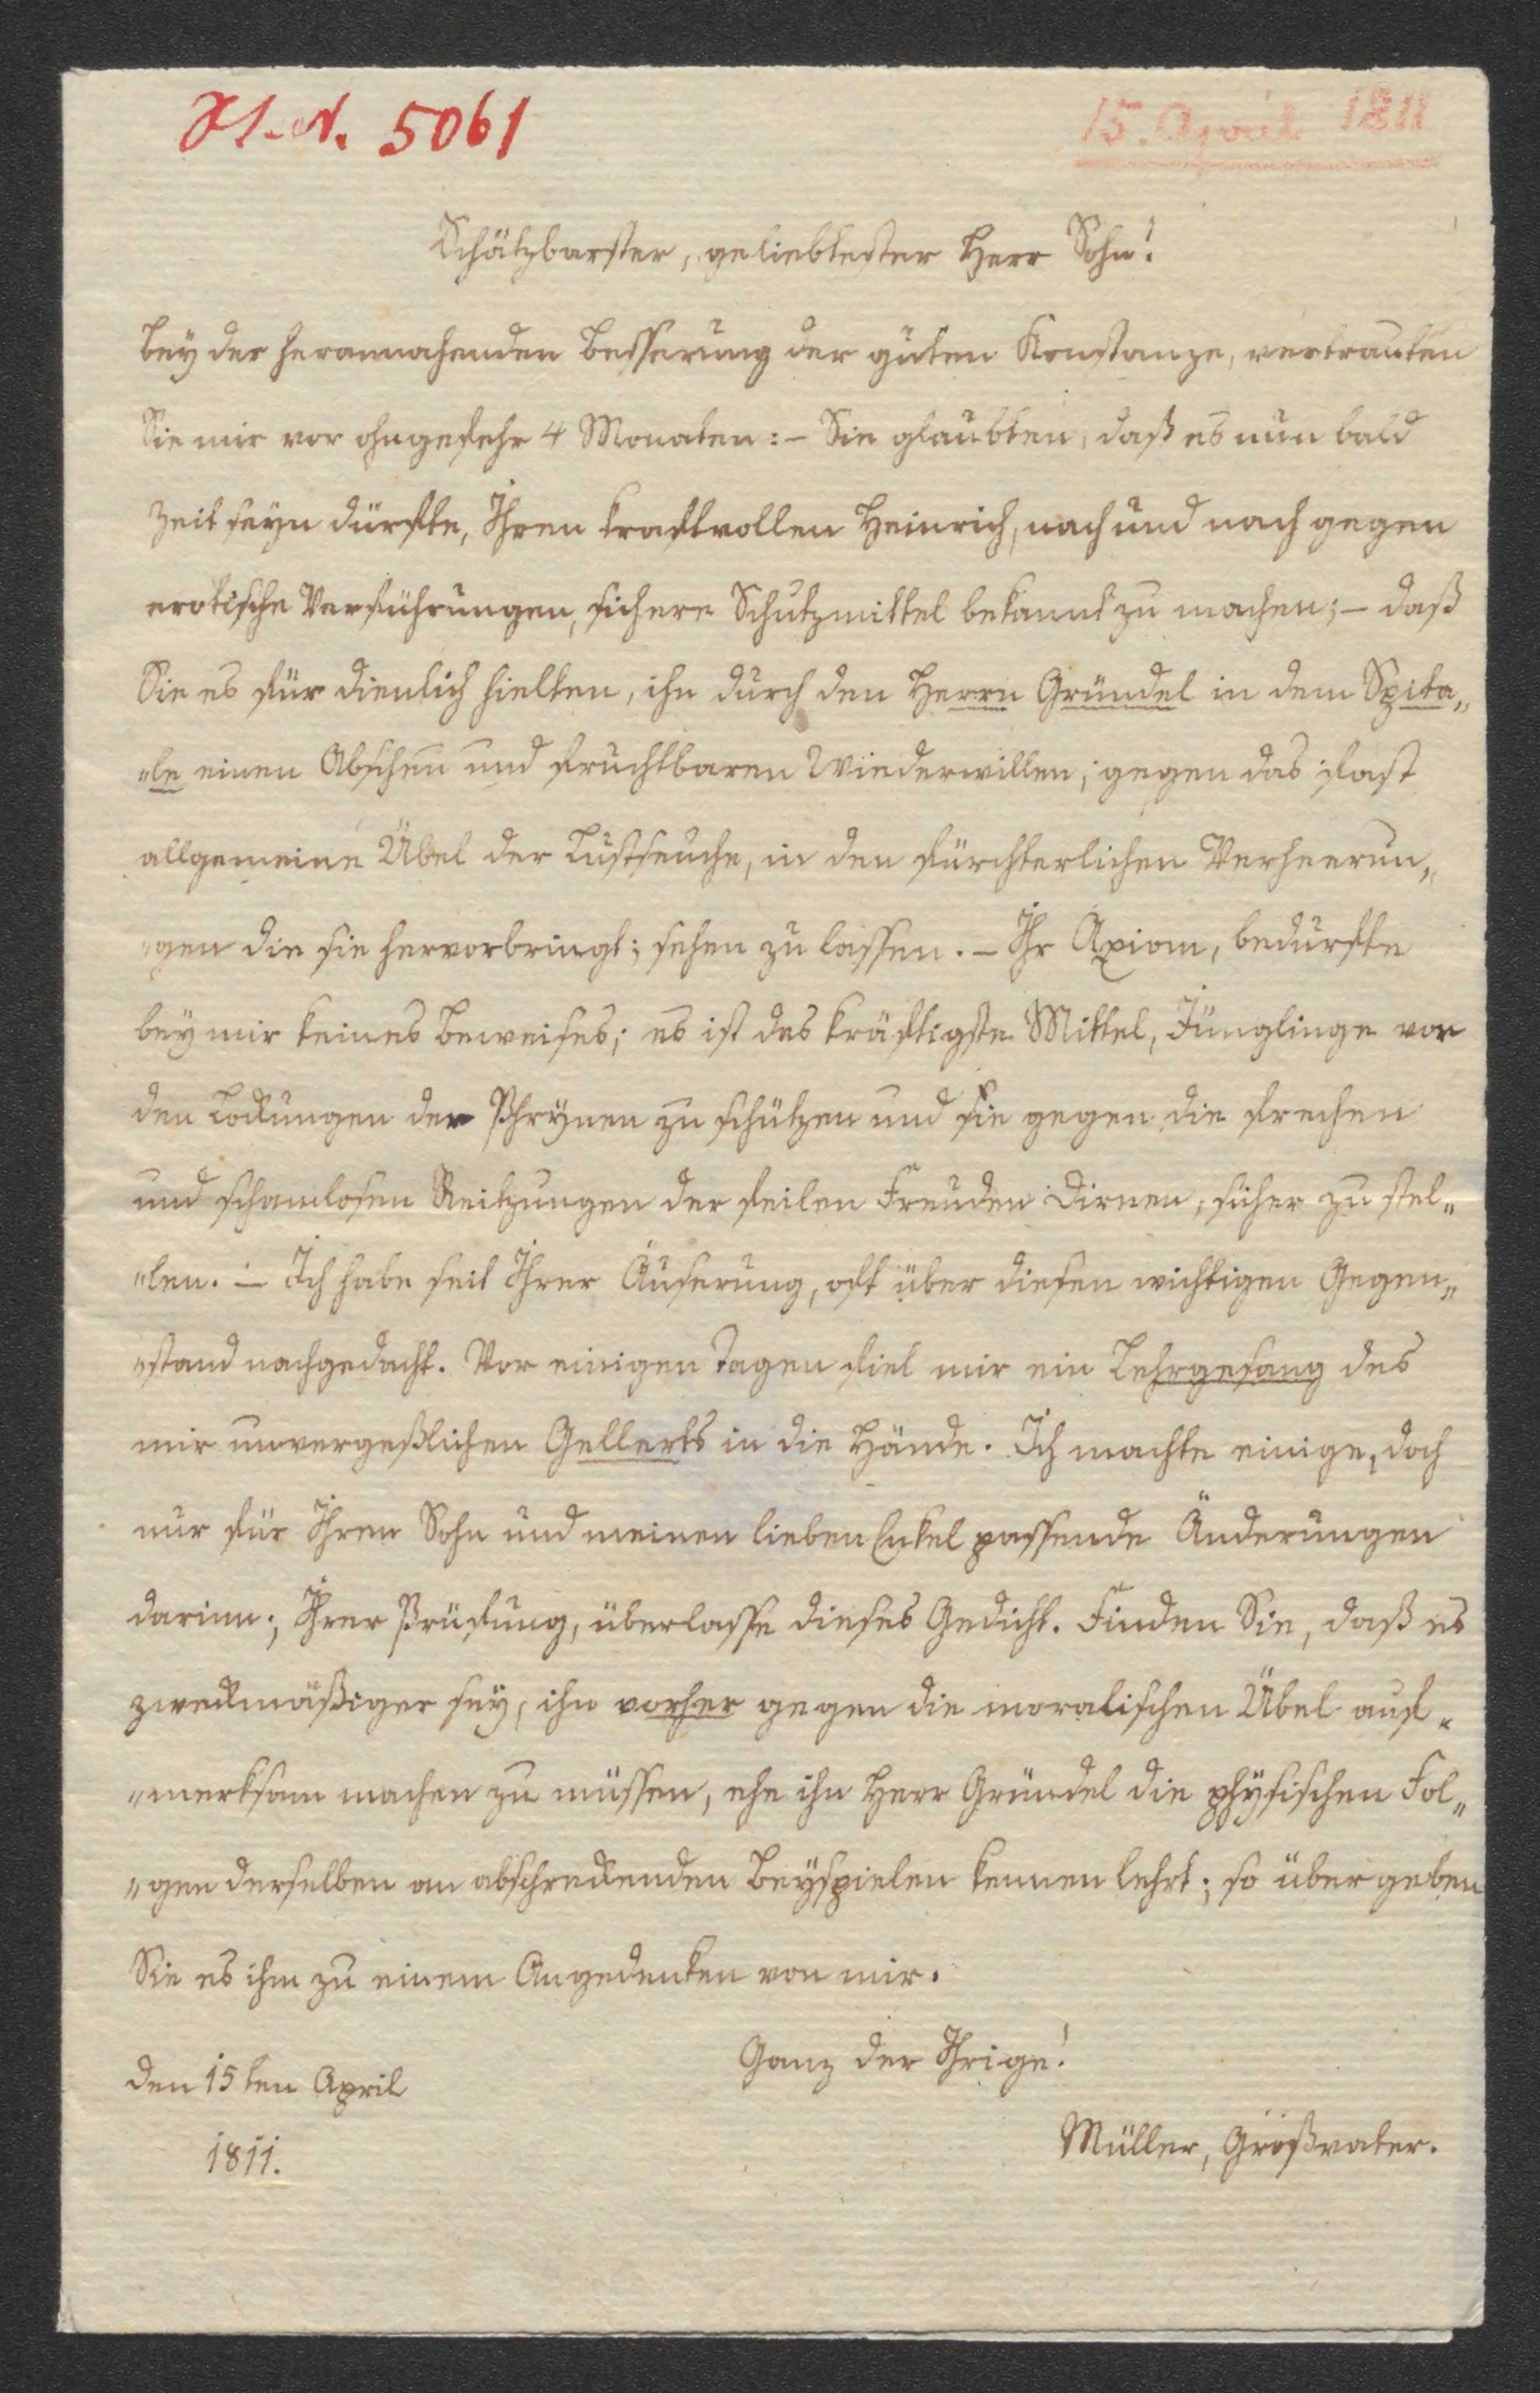 H.-N. 5061
15. April 1811
Schätzbarster, geliebtester Herr Sohn!
Bey der herannahenden Besserung der guten Konstanze, vertrauten
Sie mir vor ohngefehr 4 Monaten: – Sie glaubten, daß es nun bald
Zeit seyn dürfte, Ihren kraftvollen Heinrich, nach und nach gegen
erotische Verführungen, sichere Schutzmittel bekannt zu machen; – daß
Sie es für dienlich hielten, ihn durch den Herrn Gründel in dem Spita„
„le einen Abscheu und fruchtbaren Wiederwillen; gegen das fast
allgemeine Übel der Lustseuche, in den fürchterlichen Verheerun„
„gen die sie hervorbringt; sehen zu lassen. – Ihr Axiom, bedurfte
bey mir keines Beweises; es ist das kräftigste Mittel, Jünglinge vor
den Lockungen der Phrynen zu schützen und sie gegen die frechen
und schamlosen Reitzungen der feilen Freuden Dirnen, sicher zu stel„
„len. – Ich habe seit Ihrer Äuserung, oft über diesen wichtigen Gegen„
„stand nachgedacht. Vor einigen Tagen fiel mir ein Lehrgesang des
mir unvergeßlichen Gellerts in die Hände. Ich machte einige, doch
nur für Ihren Sohn und meinen lieben Enkel passende Änderungen
darinn; Ihrer Prüfung, überlasse dieses Gedicht. Finden Sie, daß es
zweckmäßiger sey, ihn vorher gegen die moralischen Übel auf„
„merksam machen zu müssen, ehe ihn Herr Gründel die physischen Fol„
„gen derselben an abschreckenden Beyspielen kennen lehrt; so übergeben
Sie es ihm zu einem Angedenken von mir.
Ganz der Ihrige!
den 15ten April
1811.
Müller, Großvater.